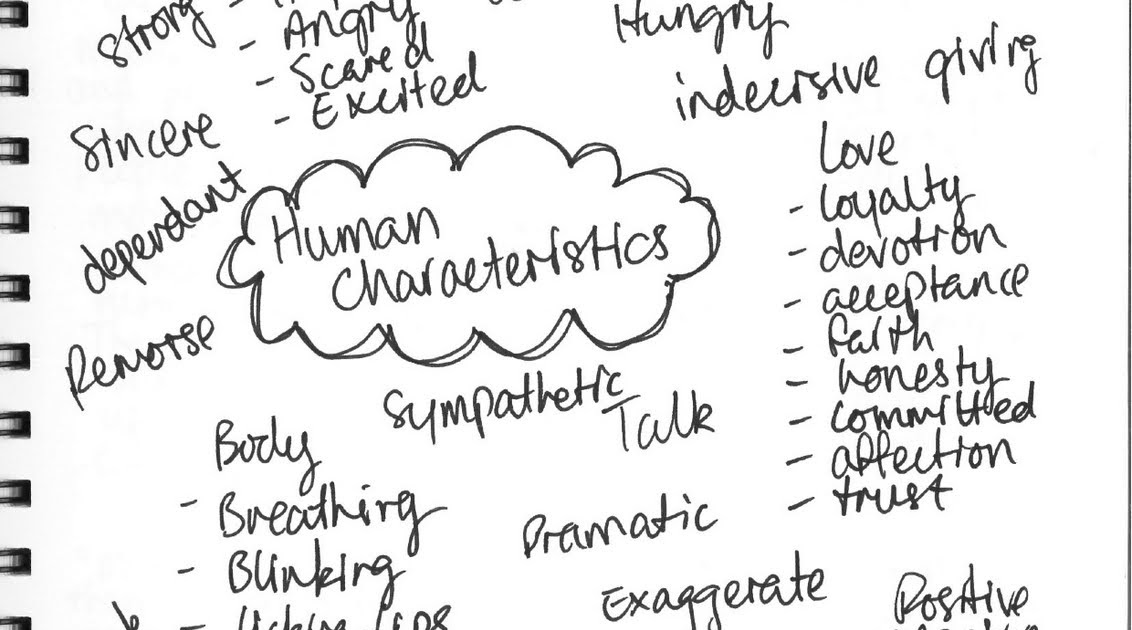 strong
- Angry
- Scared
- Excited
Hungry
indecisive
giving
Sincere
dependant
Remorse
Human
Characteristics
Love
- loyalty
- devotion
- acceptance
- faith
- honesty
- committed
- affection
- trust
Sympathetic
Talk
Body
- Breathing
- Blinking
- licking lips
Dramatic
Exaggerate
Positive